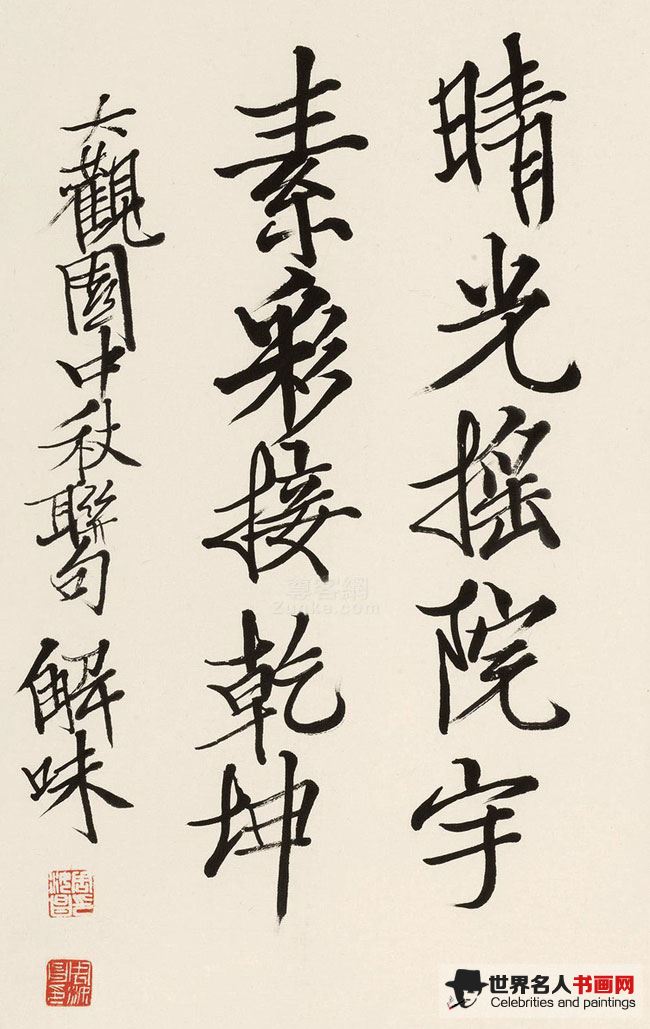 晴光摇院宇
素彩接乾坤
大觀園中秋聯句
解味
尊客網
Zunke.com
世界名人书画网
Celebrities and paintings